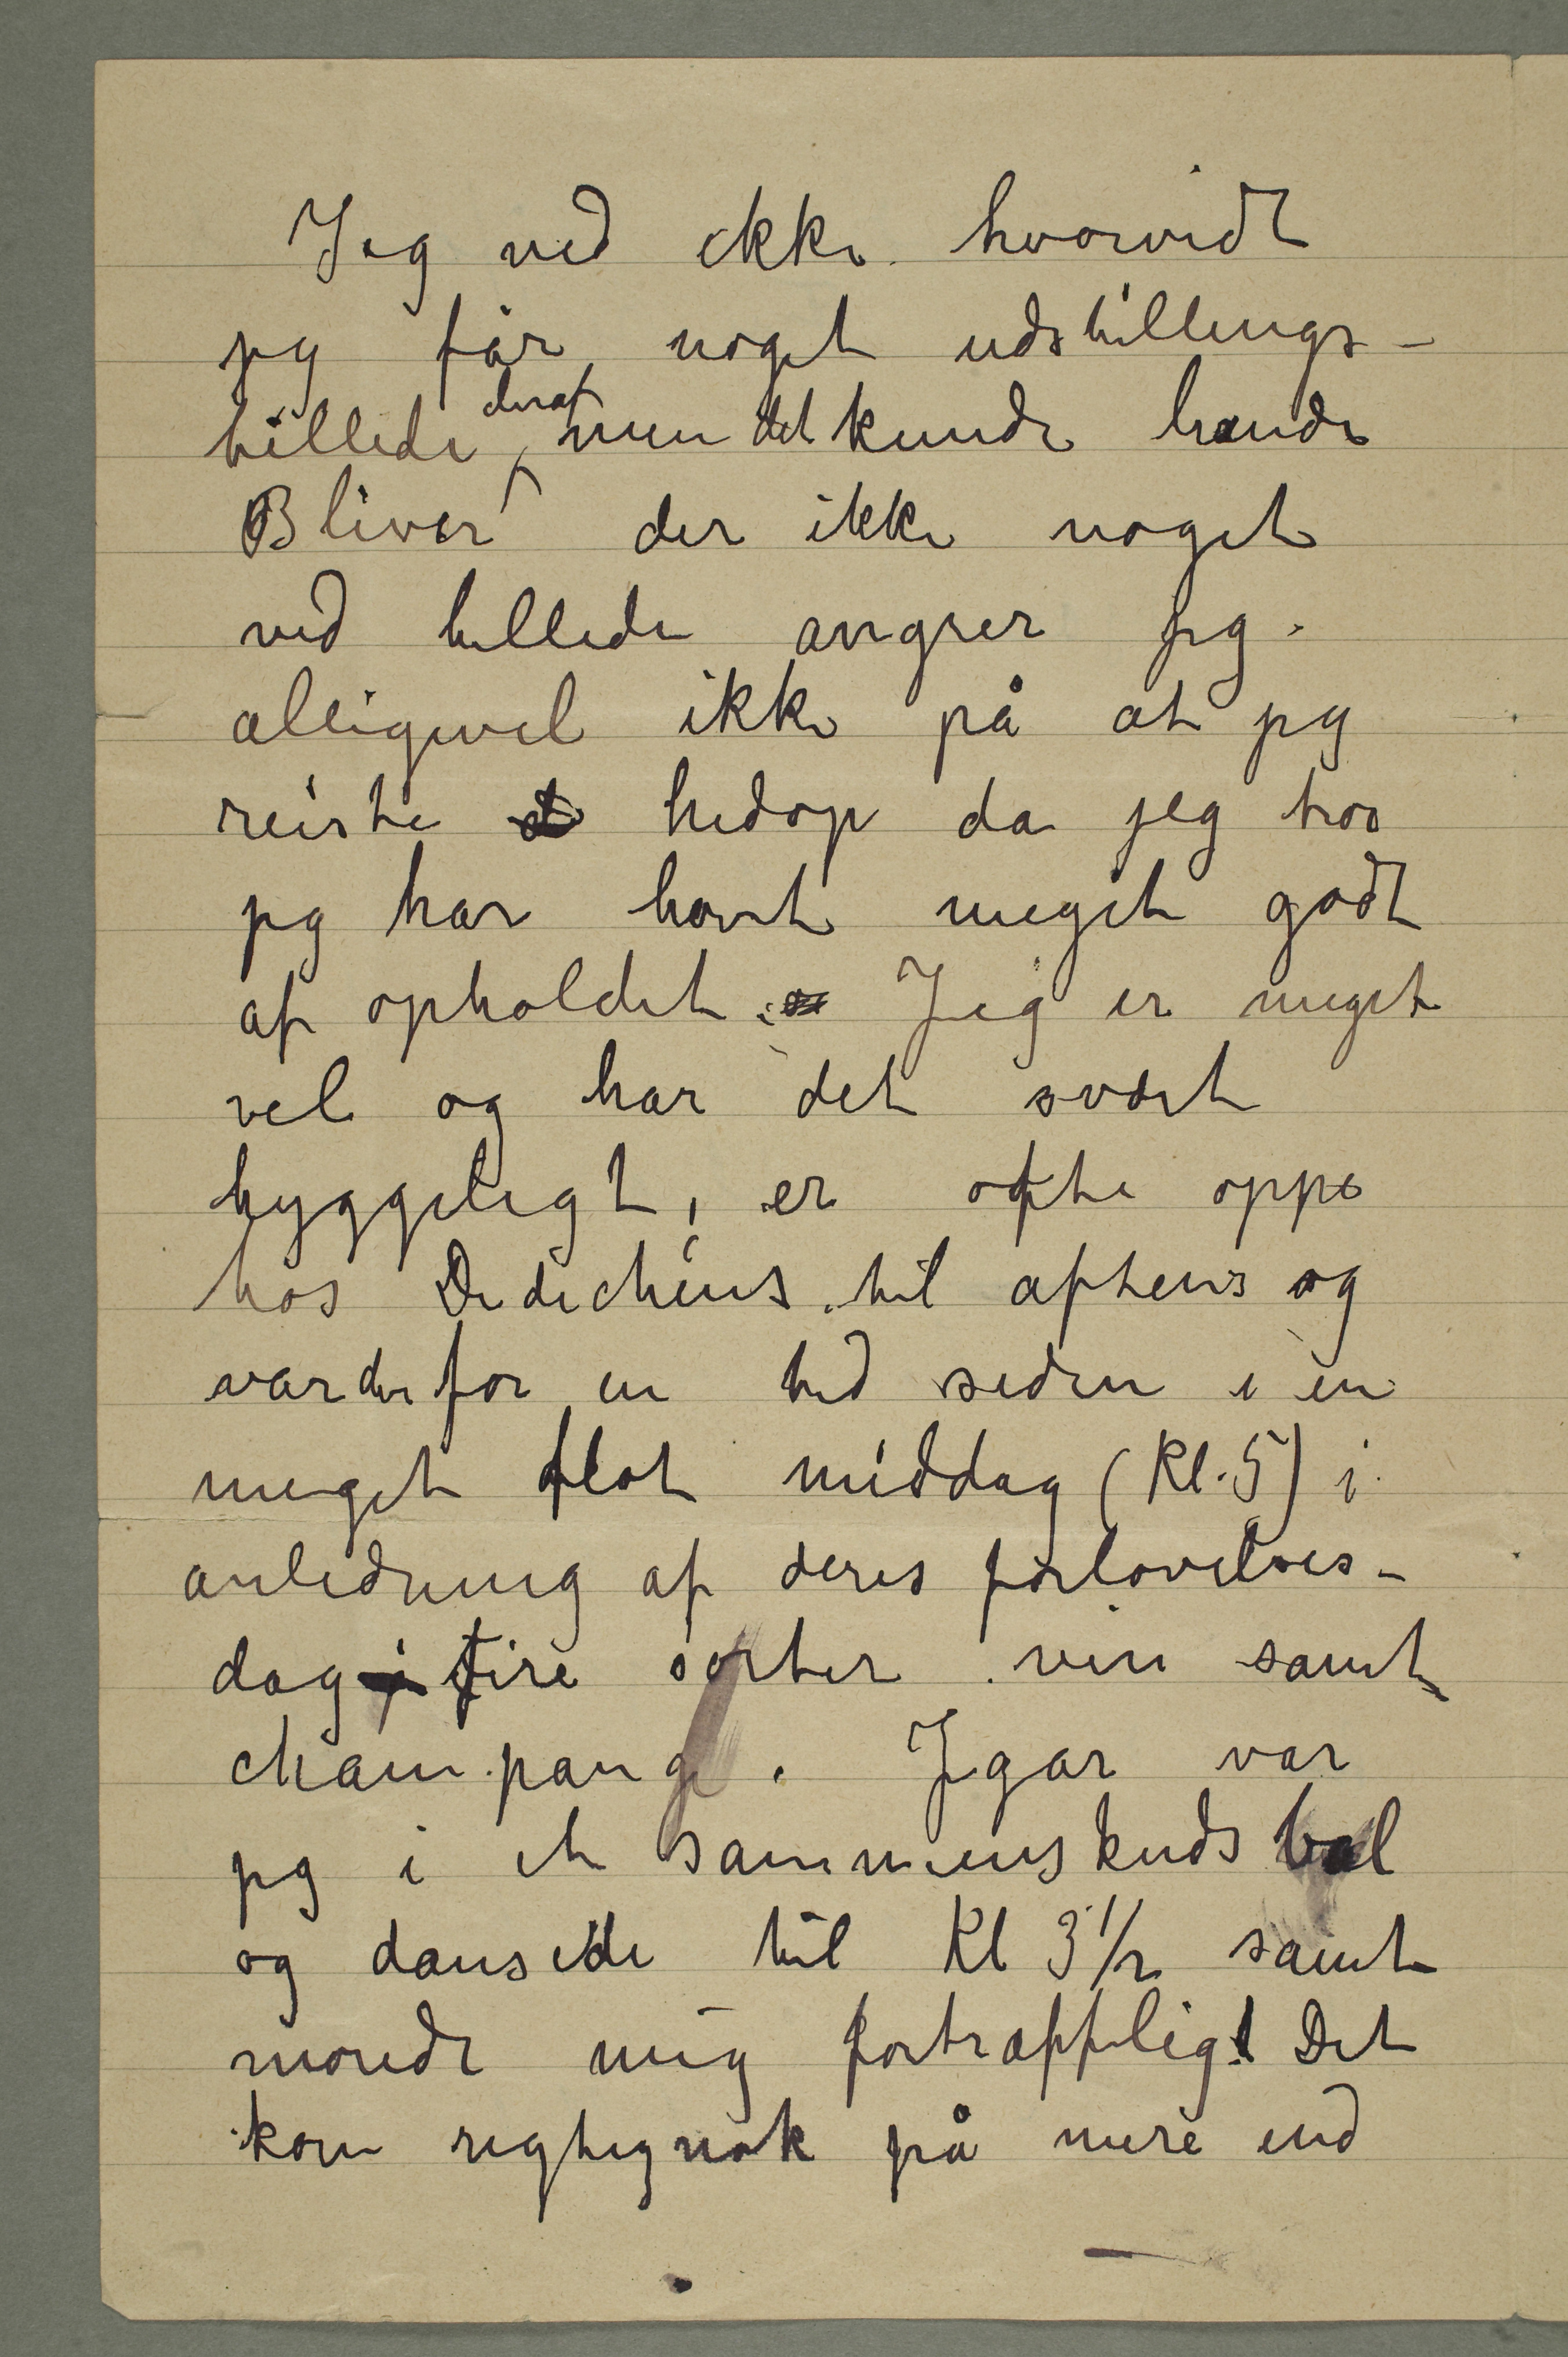 Jeg ved ikke hvorvidt
jeg får noget udstillings-
billede deraf, men det kunde hænde
Bliver der ikke noget
ved billede angrer jeg
alligevel ikke på at jeg
reiste hidop da jeg tror
jeg har havt meget godt
af opholdet. Jeg er meget
vel og har det svært
hyggeligt, er ofte oppe
hos Dedichens til aftens og
var der for en tid siden i en
meget flot middag (Kl. 5) i
anledning af deres forlovelses-
dag fire sorter vin samt
champange. Igår var
jeg i et sammenskudsbal
og dansede til Kl 3 1/2 samt
morede mig fortræffeligt Det
kom rigtignok på mere end